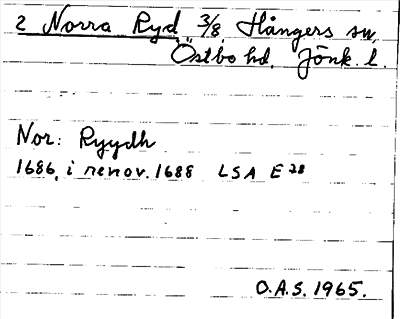 2 Norra Ryd 3/8 Hångers sn,
Östbo hd, Jönk. l.
Nor: Ryydh
1686, i renov. 1688 LSA E 28
O.A.S. 1965.